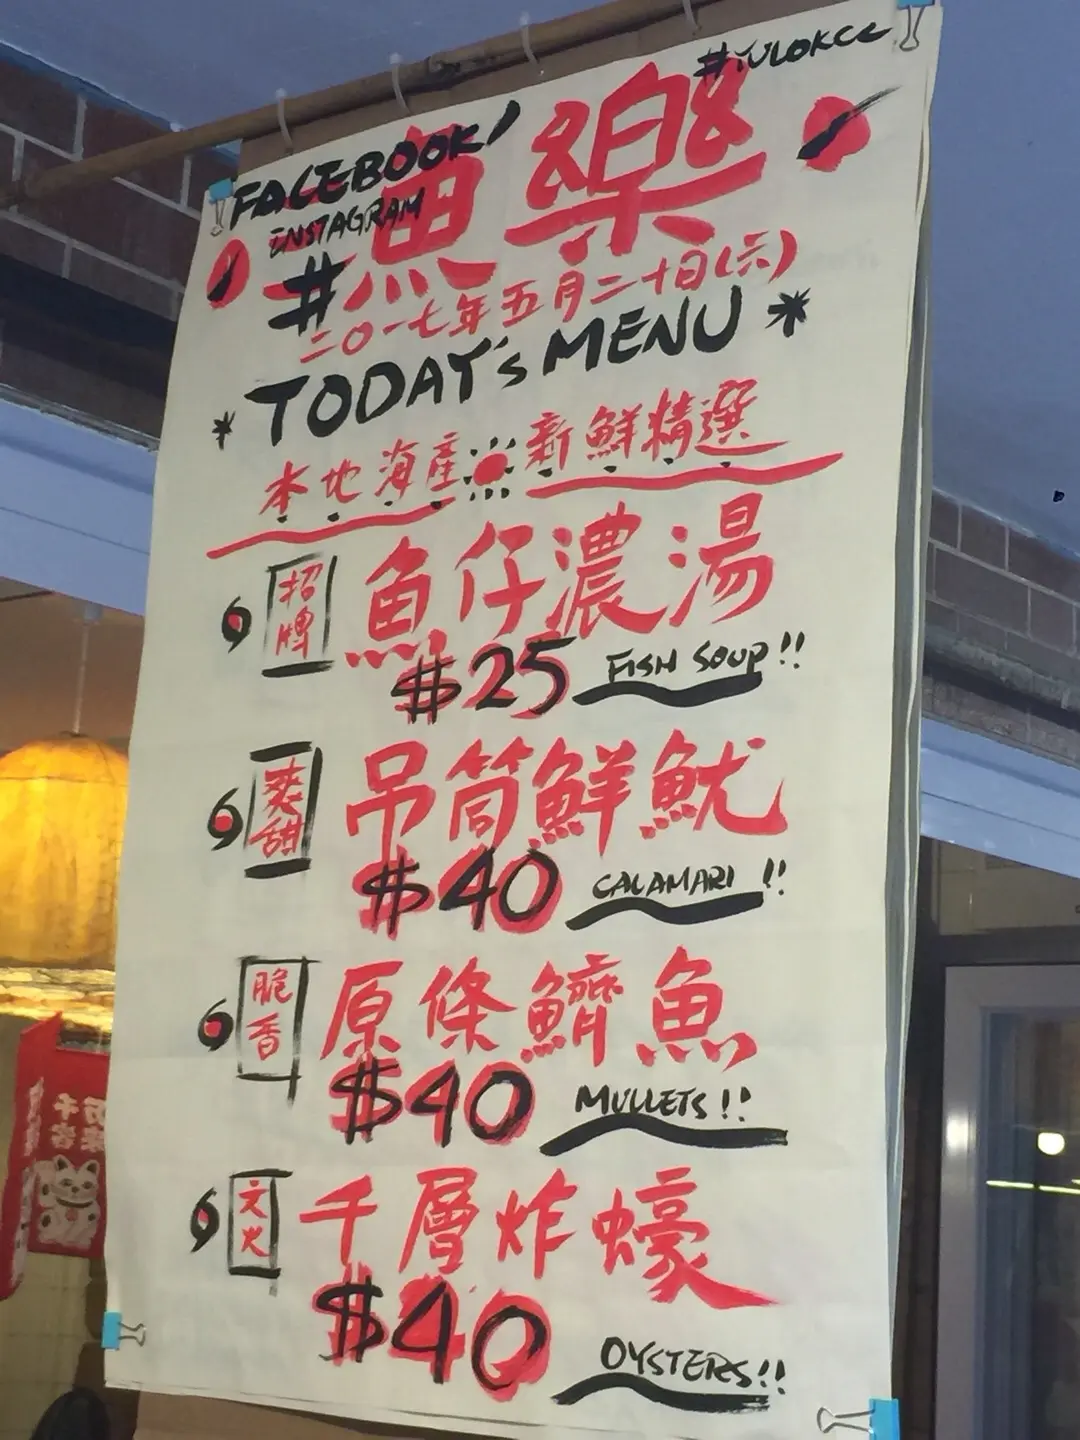 #YULOKCC
FACEBOOK/
INSTAGRAM
#魚樂
二〇一七年五月二十日(六)
*TODAY's MENU*
本地海產 新鮮精選
招牌
魚仔濃湯
$25 FISH SOUP!!
爽甜
吊筒鮮魷
$40 CALAMARI!!
脆香
原條鱭魚
$40 MULLETS!!
文火
千層炸蠔
$40 OYSTERS!!
千客